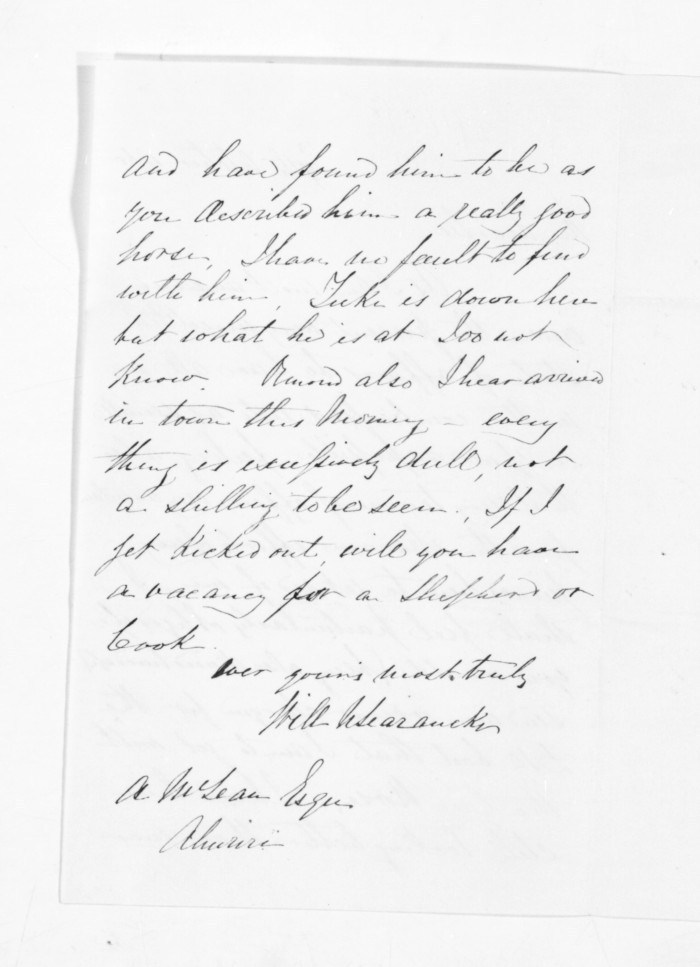 and have found him to be as
you described him a really good
horse, I have no fault to find
with him, Tuke is down here
but what he is at I do not
know. Ormond also I hear arrived
in town this Morning - every
thing is excessively dull, not
a shilling to be seen, If I
get kicked out, will you have
a vacancy for a Shepherd or
Cook
ever yours most truly
Will Searancke
A McLean Esqre
Ahuriri